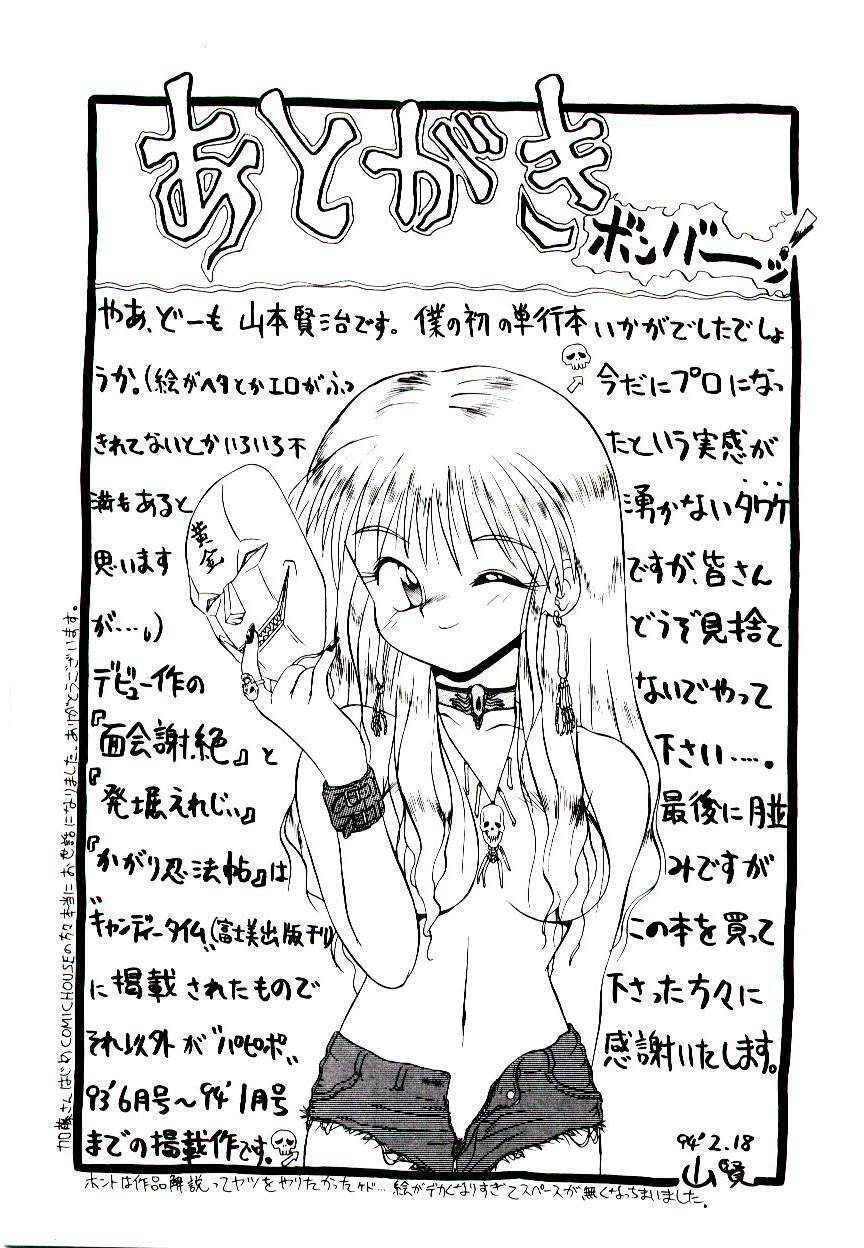 あとがき
ボンバーッ!
やあ、どーも 山本賢治です。僕の初の単行本いかがでしたでしょ
うか。(絵がヘタとかエロがふっ
きれてないとかいろいろ不
満もあると
思います
が…。)
デビュー作の
『面会謝絶』と
『発堀えれじぃ』
『かがり忍法帖』は
"キャンディータイム"(富士美出版刊)
に掲載されたもので
それ以外が"パピポ"
93'6月号〜94'1月号
までの掲載作です。
今だにプロになっ
たという実感が
湧かないタワケ
ですが、皆さん
どうぞ見捨て
ないでやって
下さい….。
最後に月並
みですが
この本を買って
下さった方々に
感謝いたします。
94'2.18
山賢
黄金
加藤さんはじめCOMIC HOUSEの方々本当にお世話になりました。ありがとうございます。
ホントは作品解説ってヤツをやりたかったケド…絵がデかくなりすぎてスペースが無くなっちまいました。